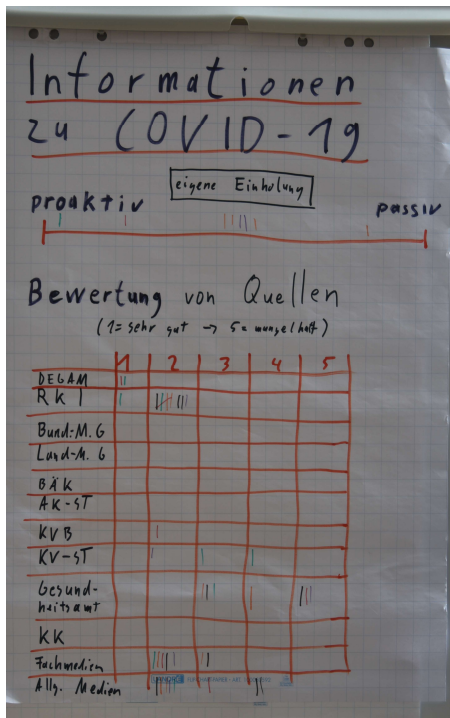 Informationen
zu COVID-19
eigene Einholung
proaktiv passiv
Bewertung von Quellen
(1= sehr gut → 5= mangelhaft)
1 2 3 4 5
DEGAM
RKI
Bund-M. G
Land-M. G
BÄK
AK-ST
KVB
KV-ST
Gesund-
heitsamt
KK
Fachmedien
Allg. Medien